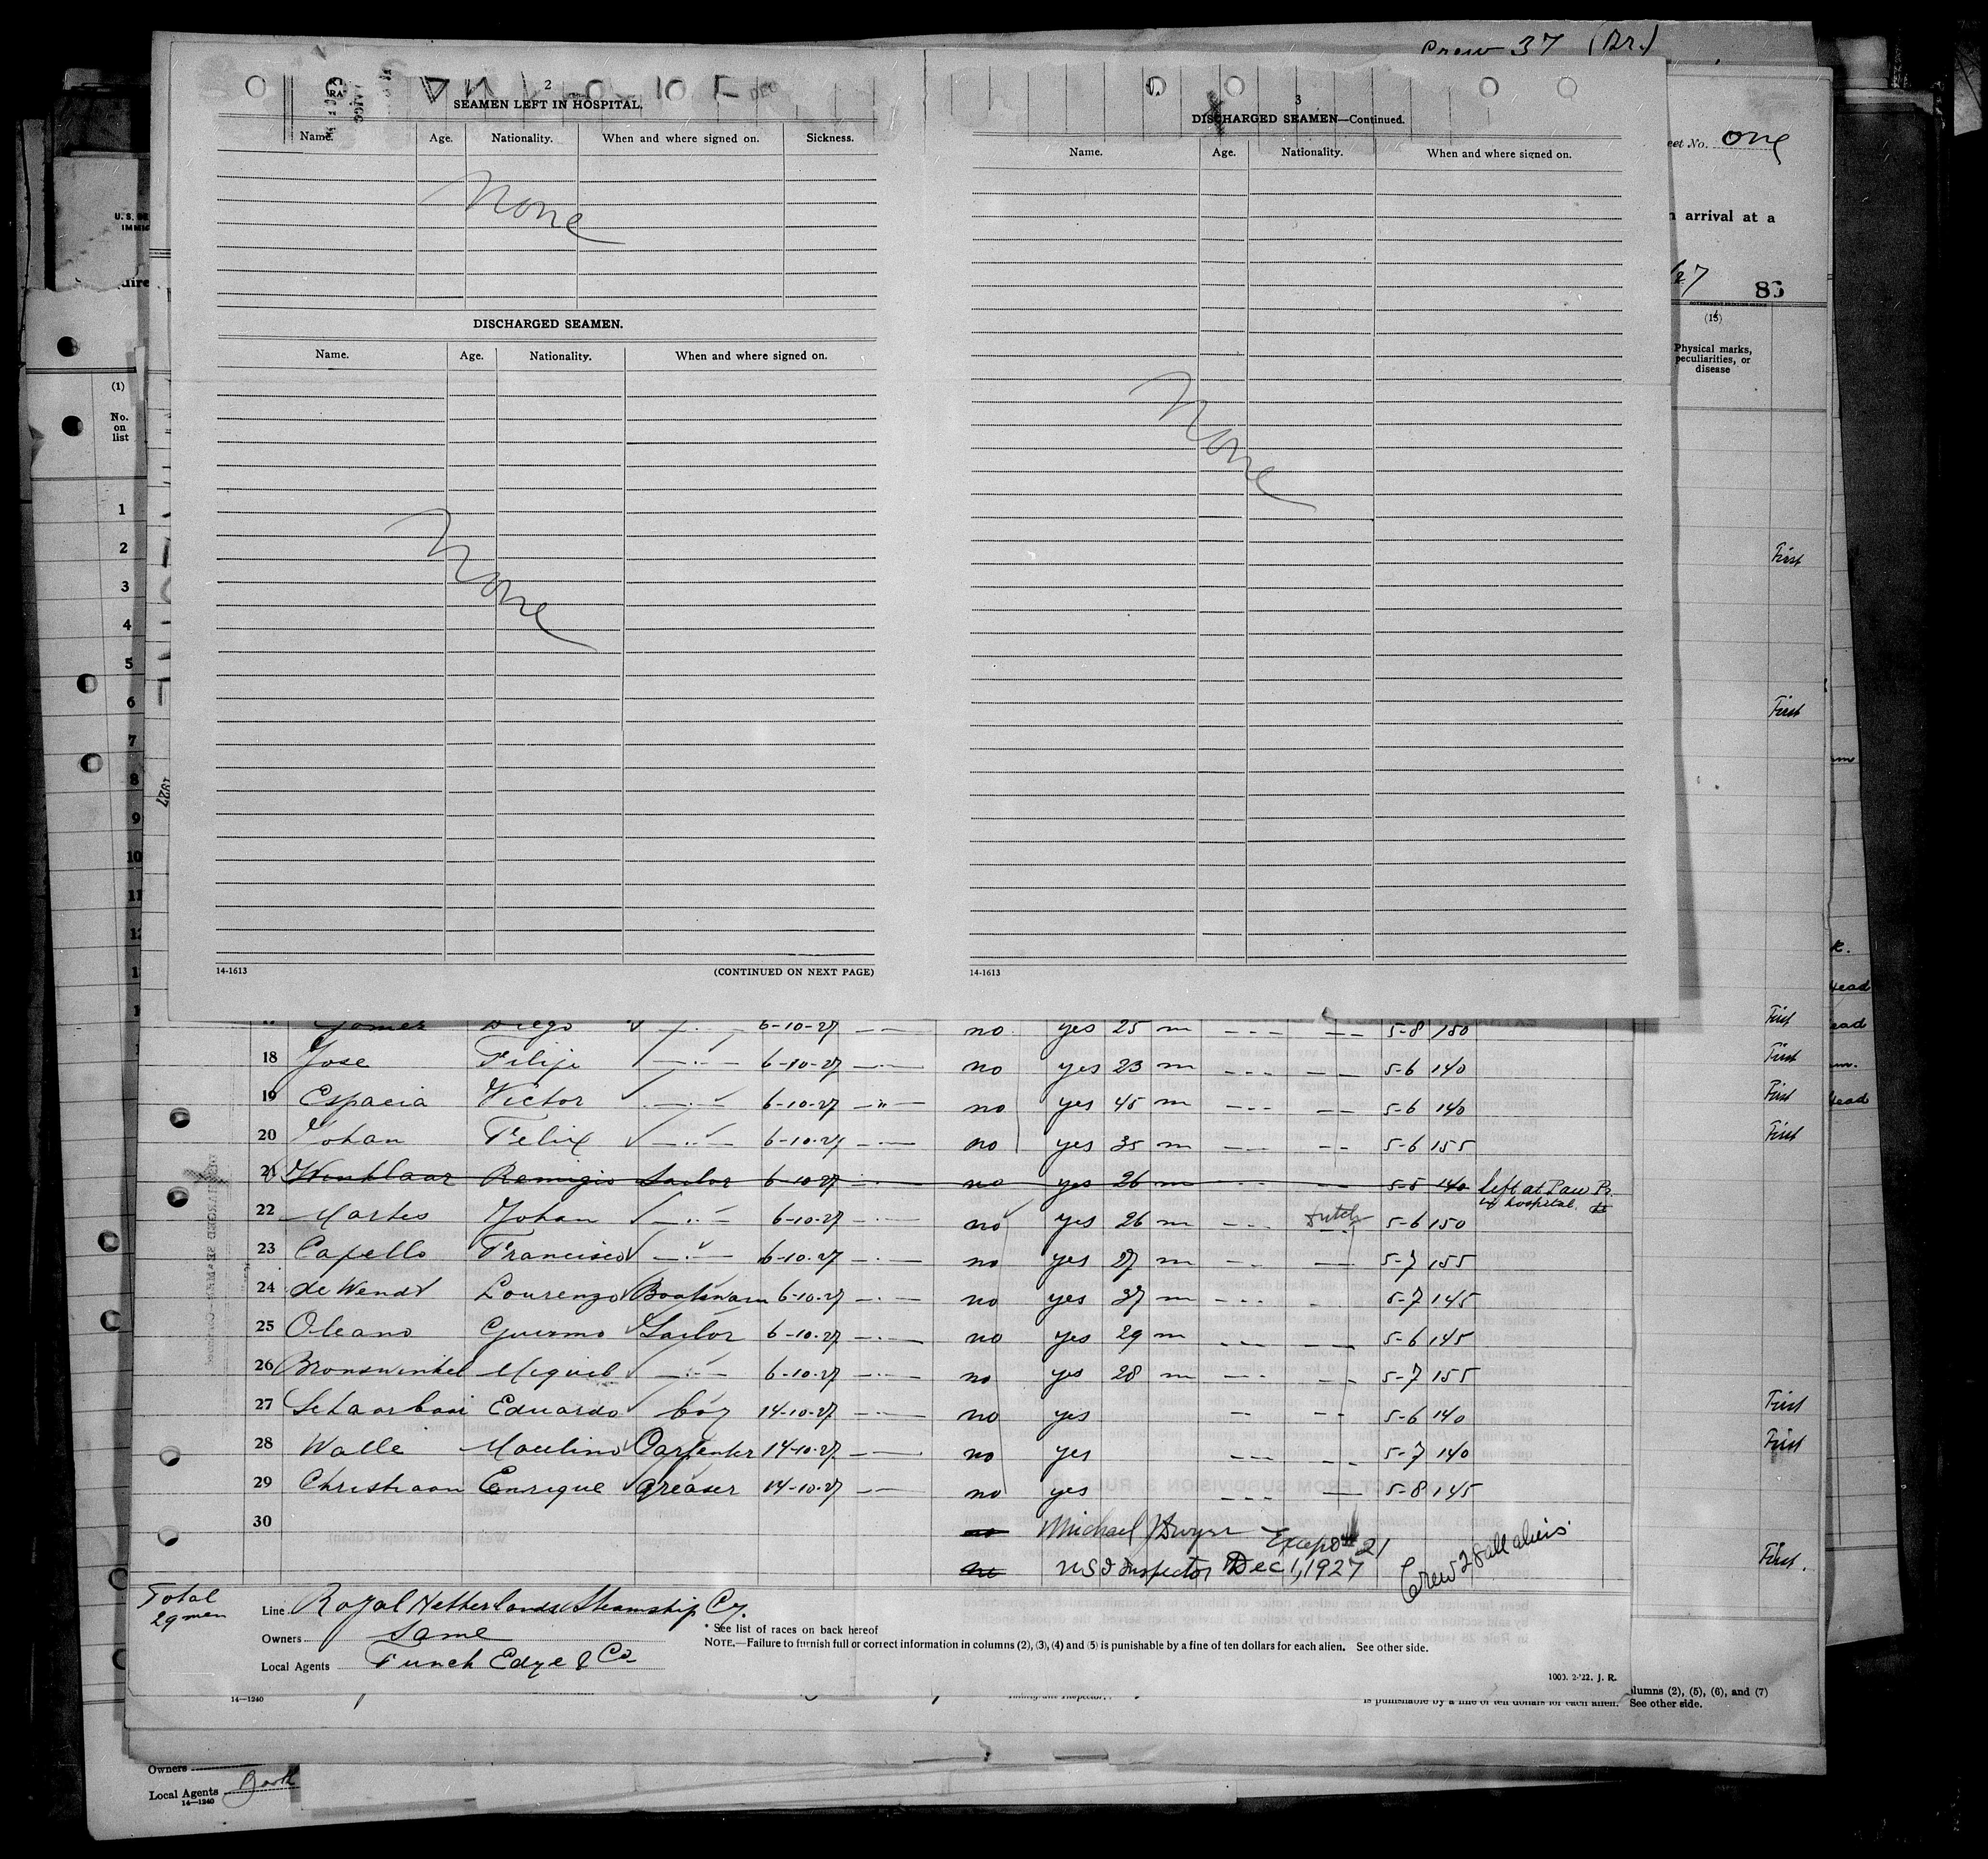 Crew 37 (Br.)
2
SEAMEN LEFT IN HOSPITAL.
Name. Age. Nationality. When and where signed on. Sickness.
None
DISCHARGED SEAMEN.
Name. Age. Nationality. When and where signed on.
None
14-1613 (CONTINUED ON NEXT PAGE)
3
DISCHARGED SEAMEN—Continued.
Name. Age. Nationality. When and where signed on.
None
14-1613
eet No. one
arrival at a
/27 86
Physical marks, peculiarities, or disease
(1)
No. on list
1
2
3
4
5
6
7
8
9
10
11
12
First
First
Diego 6-10-27 no yes 25 m 5-8 150 First
18 Jose Filipe 6-10-27 no yes 23 m 5-6 140 First
19 Espacia Victor 6-10-27 no yes 45 m 5-6 140 First
20 Johan Felix 6-10-27 no yes 35 m 5-6 155 First
21 Winklaar Remigio Sailor 6-10-27 no yes 26 m 5-5 140 left at Pau Pr. hospital
22 Martes Johan 6-10-27 no yes 26 m Dutch 5-6 150
23 Capello Francisco 6-10-27 no yes 27 m 5-7 155
24 de Wendt Lourenzo Boatswain 6-10-27 no yes 37 m 5-7 145
25 Oleano Guermo Sailor 6-10-27 no yes 29 m 5-6 145
26 Bronswinkel Miguel 6-10-27 no yes 28 m 5-7 155
27 Eduardo boy 14-10-27 no yes 5-6 140 First
28 Walle Maulino Carpenter 14-10-27 no yes 5-7 140 First
29 Christiaan Enrique Greaser 14-10-27 no yes 5-8 145
30 no Michael J Dwyer Except # 21
USI Inspector Dec 1, 1927 Crew 28 all aliens First.
Total 29 men
Line Royal Netherlands Steamship Cy.
Owners Same
Local Agents Funch Edye & Co
* See list of races on back hereof
NOTE.—Failure to furnish full or correct information in columns (2), (3), (4) and (5) is punishable by a fine of ten dollars for each alien. See other side.
14—1240
Immigrant Inspector.
lumns (2), (5), (6), and (7)
is punishable by a fine of ten dollars for each alien. See other side.
Owners
Local Agents
14—1240